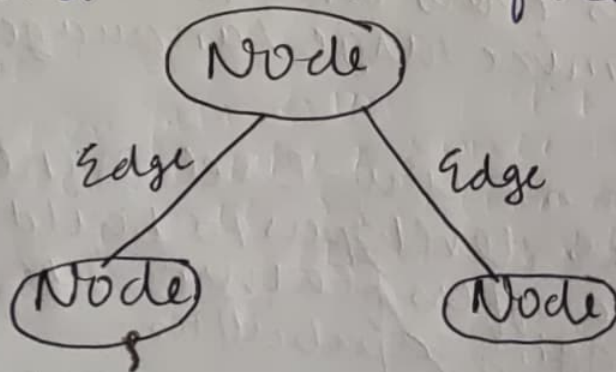 Node
Edge
Edge
Node
Node